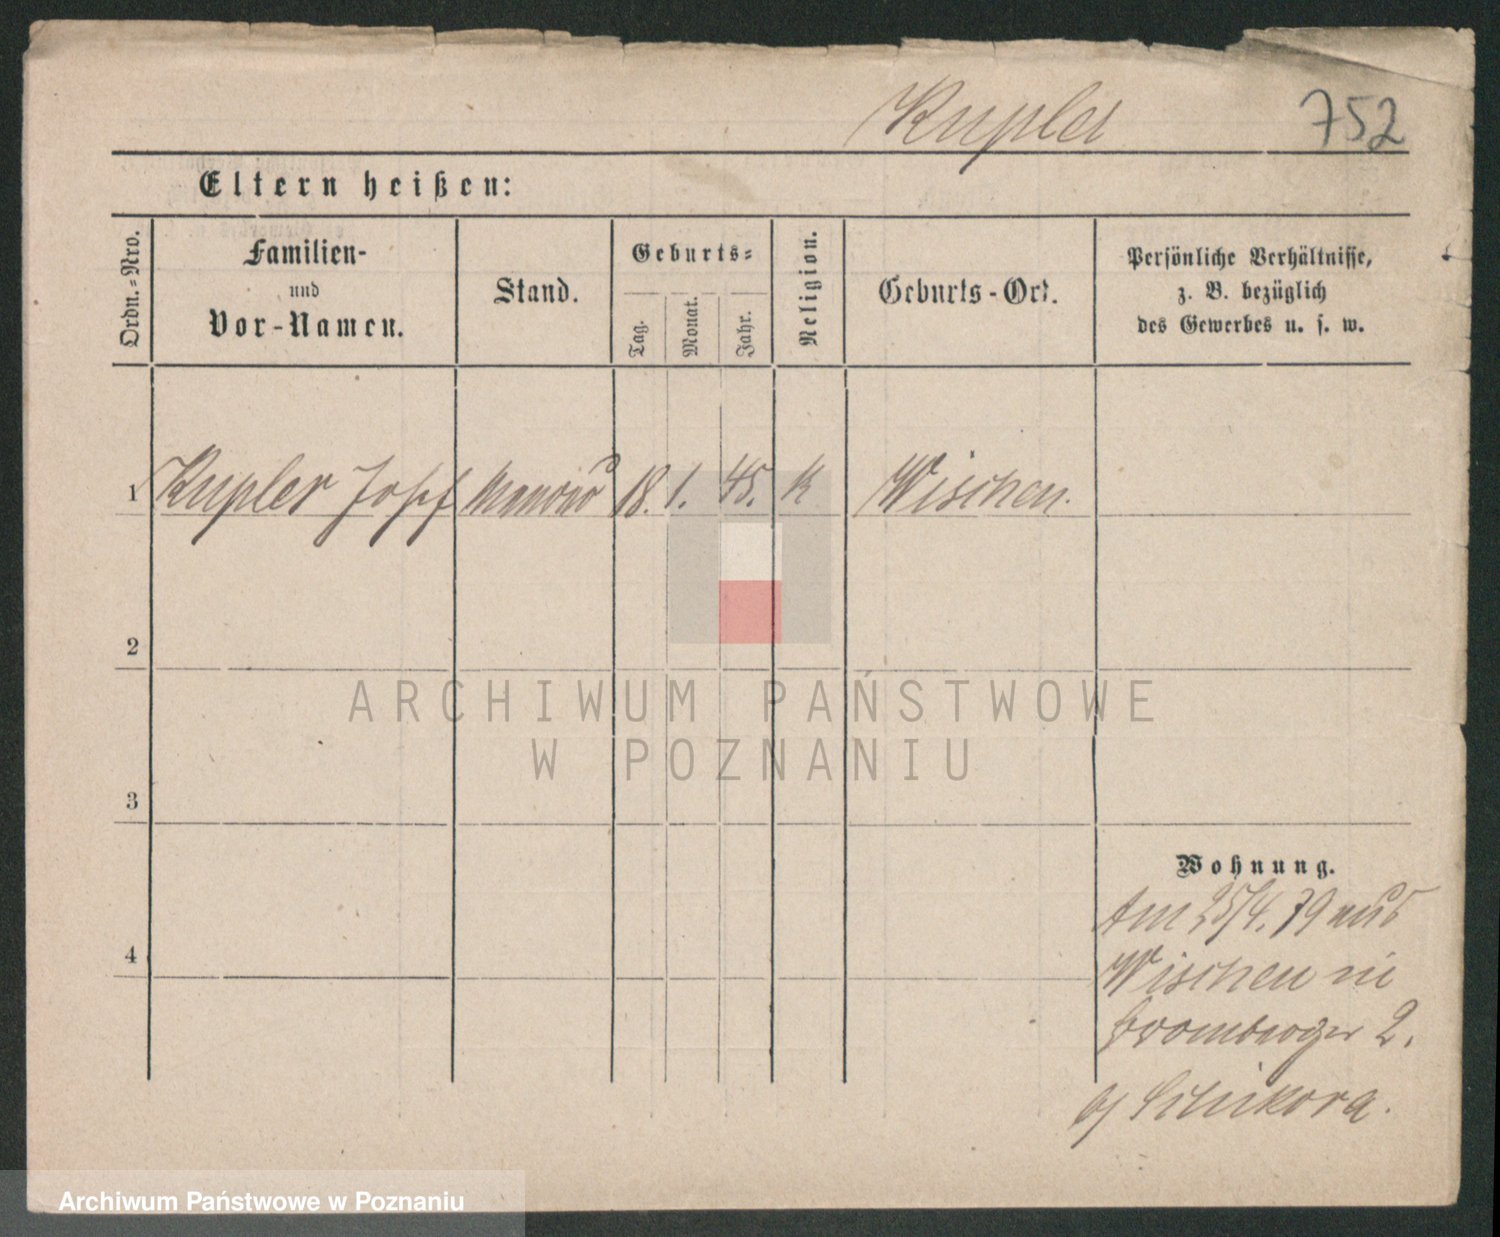 Kupler 752
Eltern heißen:
Ordn.-Nro.
Familien-
und
Vor-Namen.
Stand.
Geburts-
Tag.
Monat.
Jahr.
Religion.
Geburts-Ort.
Persönliche Verhältnisse,
z. B. bezüglich
des Gewerbes u. s. w.
1 Kupler Josef 18. 1. 45. k Wischen.
2
3
4
Wohnung.
Am 25/4. 79 aus
Wischen in
Bromberger 2.
ARCHIWUM PAŃSTWOWE
W POZNANIU
Archiwum Państwowe w Poznaniu